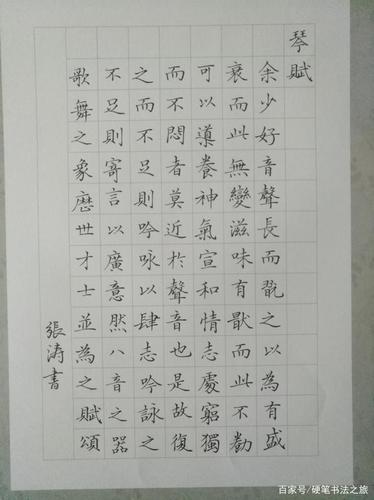 琴賦
余少好音聲長而翫之以為有盛
衰而此無變滋味有猒而此不勌
可以導養神氣宣和情志處窮獨
而不悶者莫近於聲音也是故復
之而不足則吟咏以肆志吟詠之
不足則寄言以廣意然八音之器
歌舞之象歷世才士並為之賦頌
張涛書
百家号/硬笔书法之旅